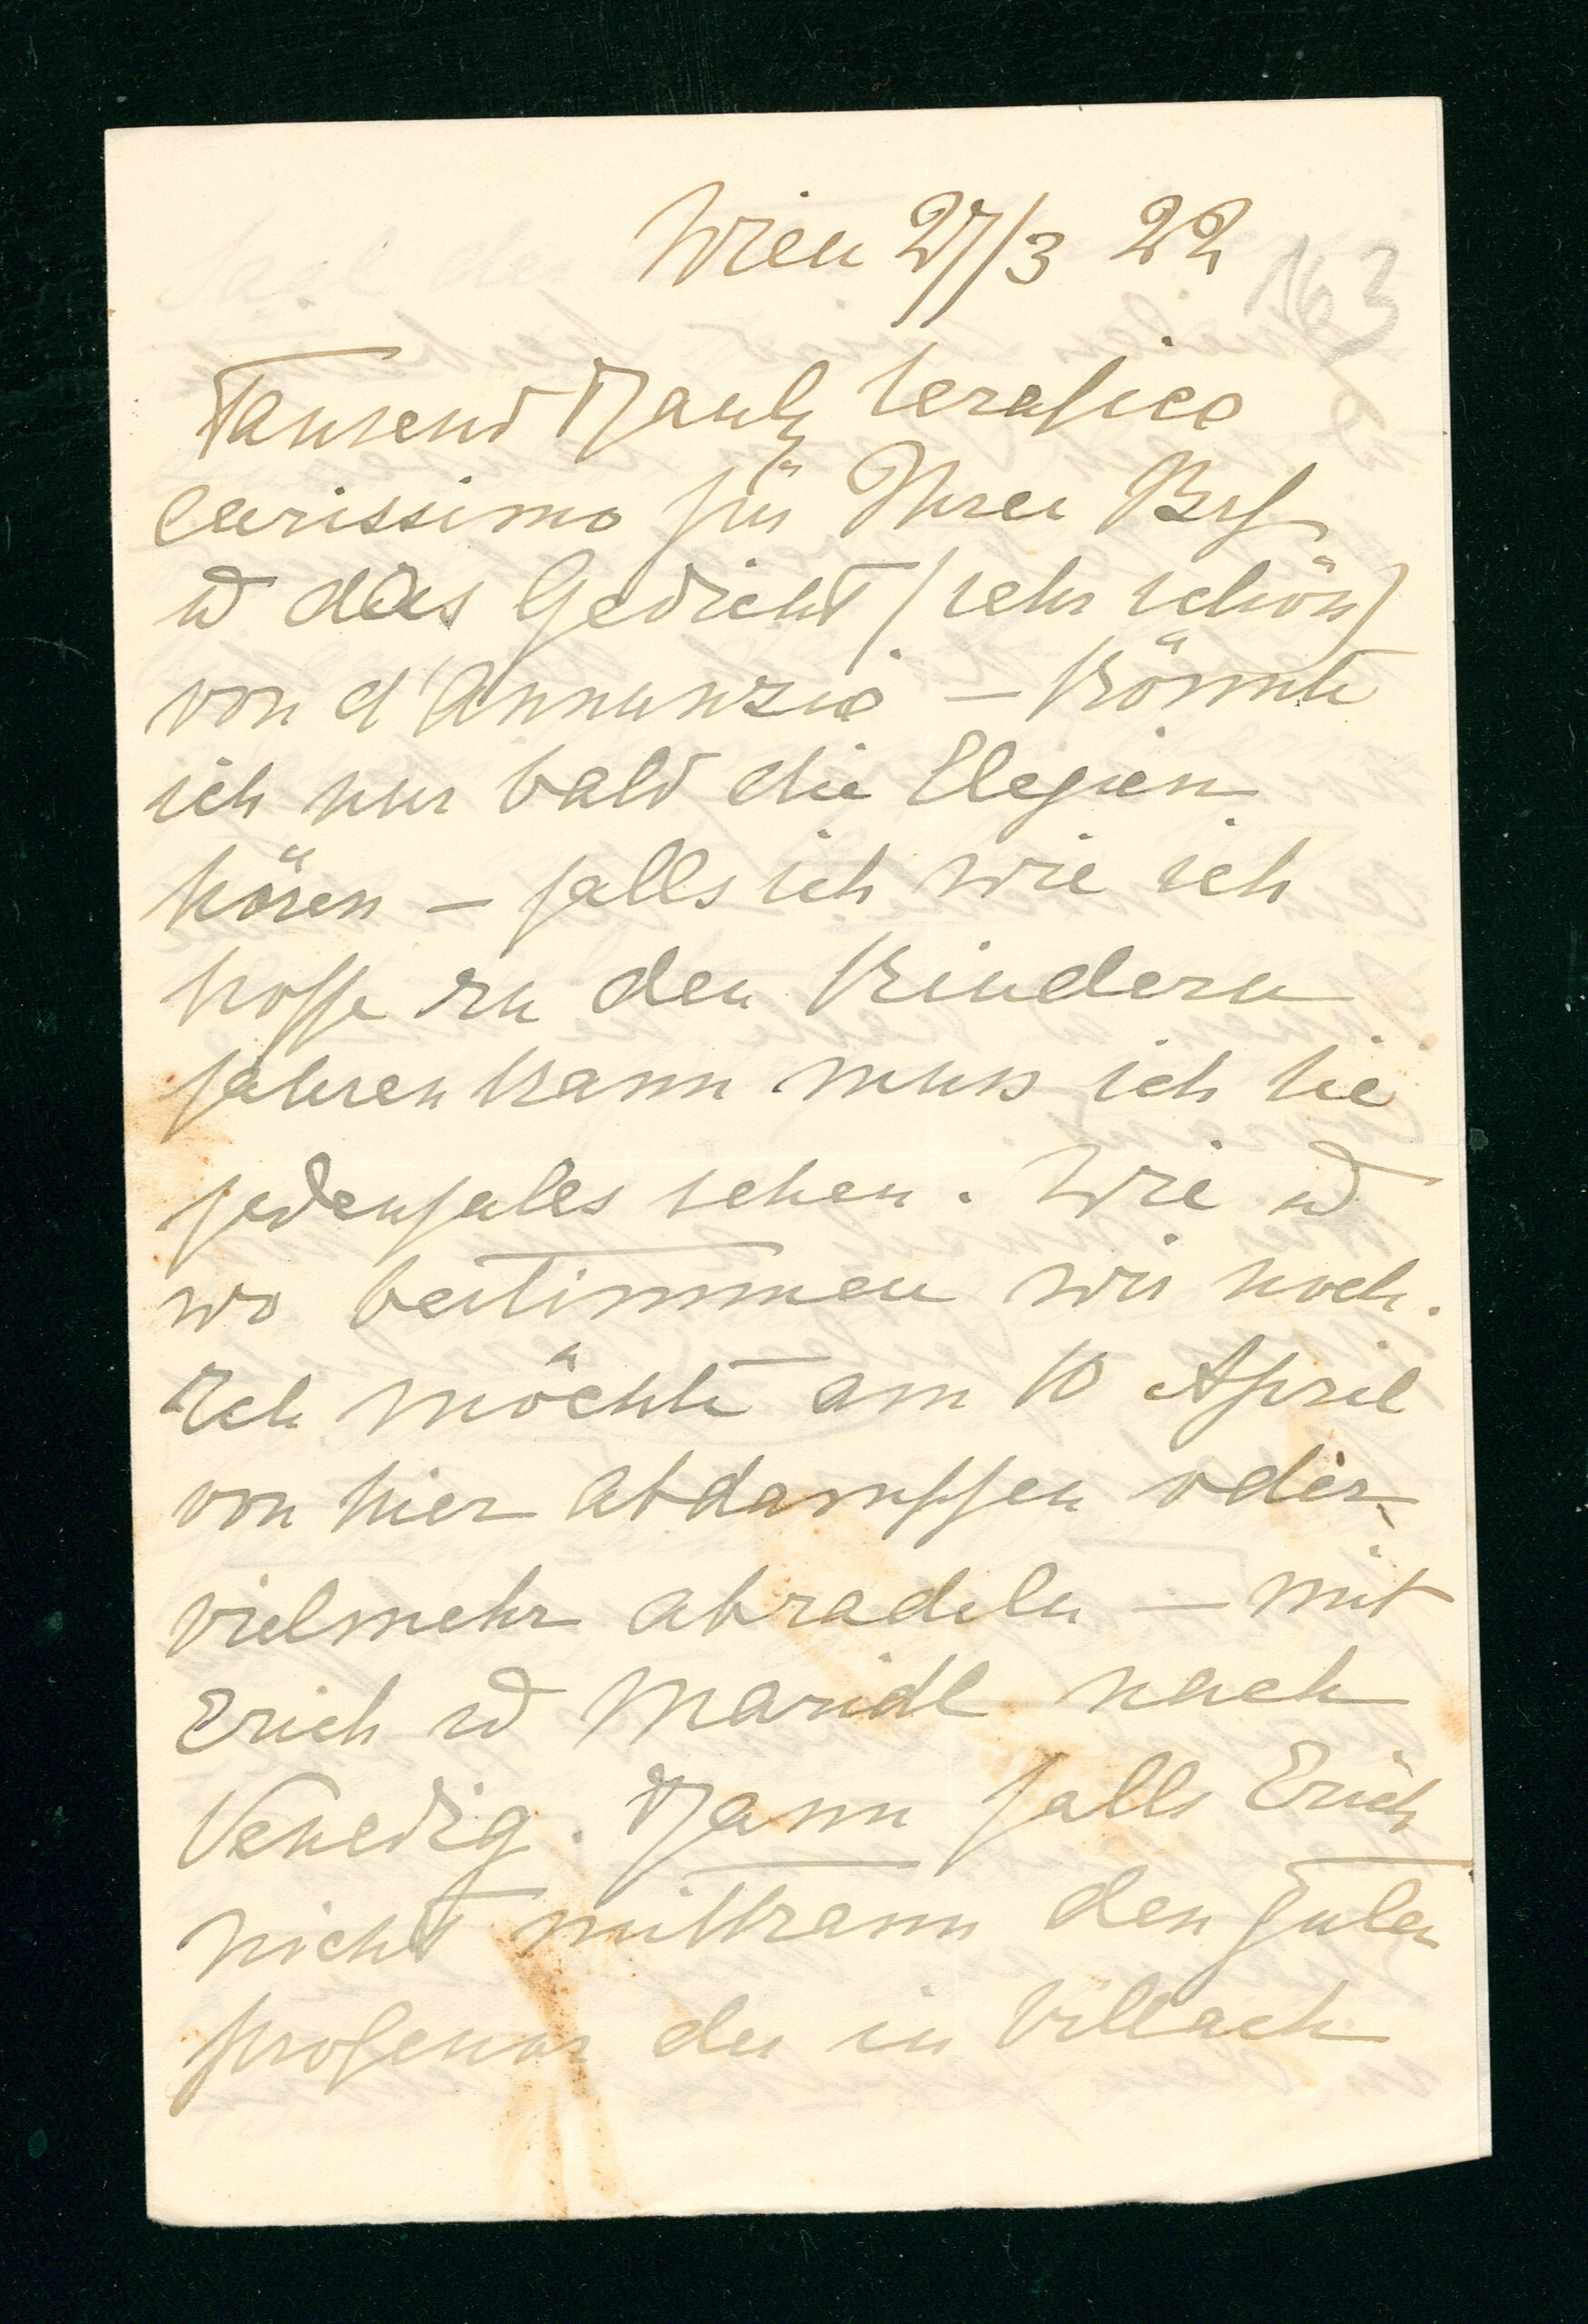 Wien 27/3 22
163
Tausend Dank Serafico
carissimo für Ihren Brf
u das Gedicht (sehr schön)
von d'Annunzio – Könnte
ich nur bald die Elegien
hören – falls ich wie ich
hoffe zu den Kindern
fahren kann muss ich Sie
jedenfalls sehen. Wie u
wo bestimmen wir noch.
Ich möchte am 10 April
von hier abdampfen oder
vielmehr abradeln – mit
Erich u Maridl nach
Venedig. Dann falls Erich
nicht mitkann den guten
professor der in Villach